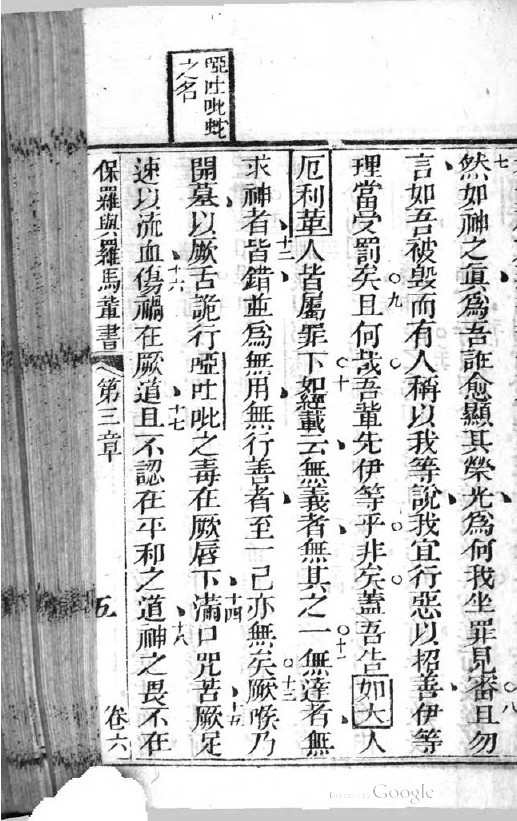 啞吐吡蛇
之名
七
然如神之眞爲吾誑愈顯其榮光爲何我坐罪見審且勿
八
言如吾被毀而有人稱以我等說我宜行惡以招善伊等
理當受罰矣且何哉吾輩先伊等乎非矣蓋吾告如大人
九
厄利革人皆屬罪下如經載云無義者無其之一無達者無
十
十一
求神者皆錯並爲無用無行善者至一己亦無矣厥喉乃
十二
十三
開墓以厥舌詭行啞吐吡之毒在厥唇下滿口咒苦厥足
十四
十五
速以流血傷禍在厥道且不認在平和之道神之畏不在
十六
十七
十八
保羅與羅馬輩書
第三章
五
卷六
Google